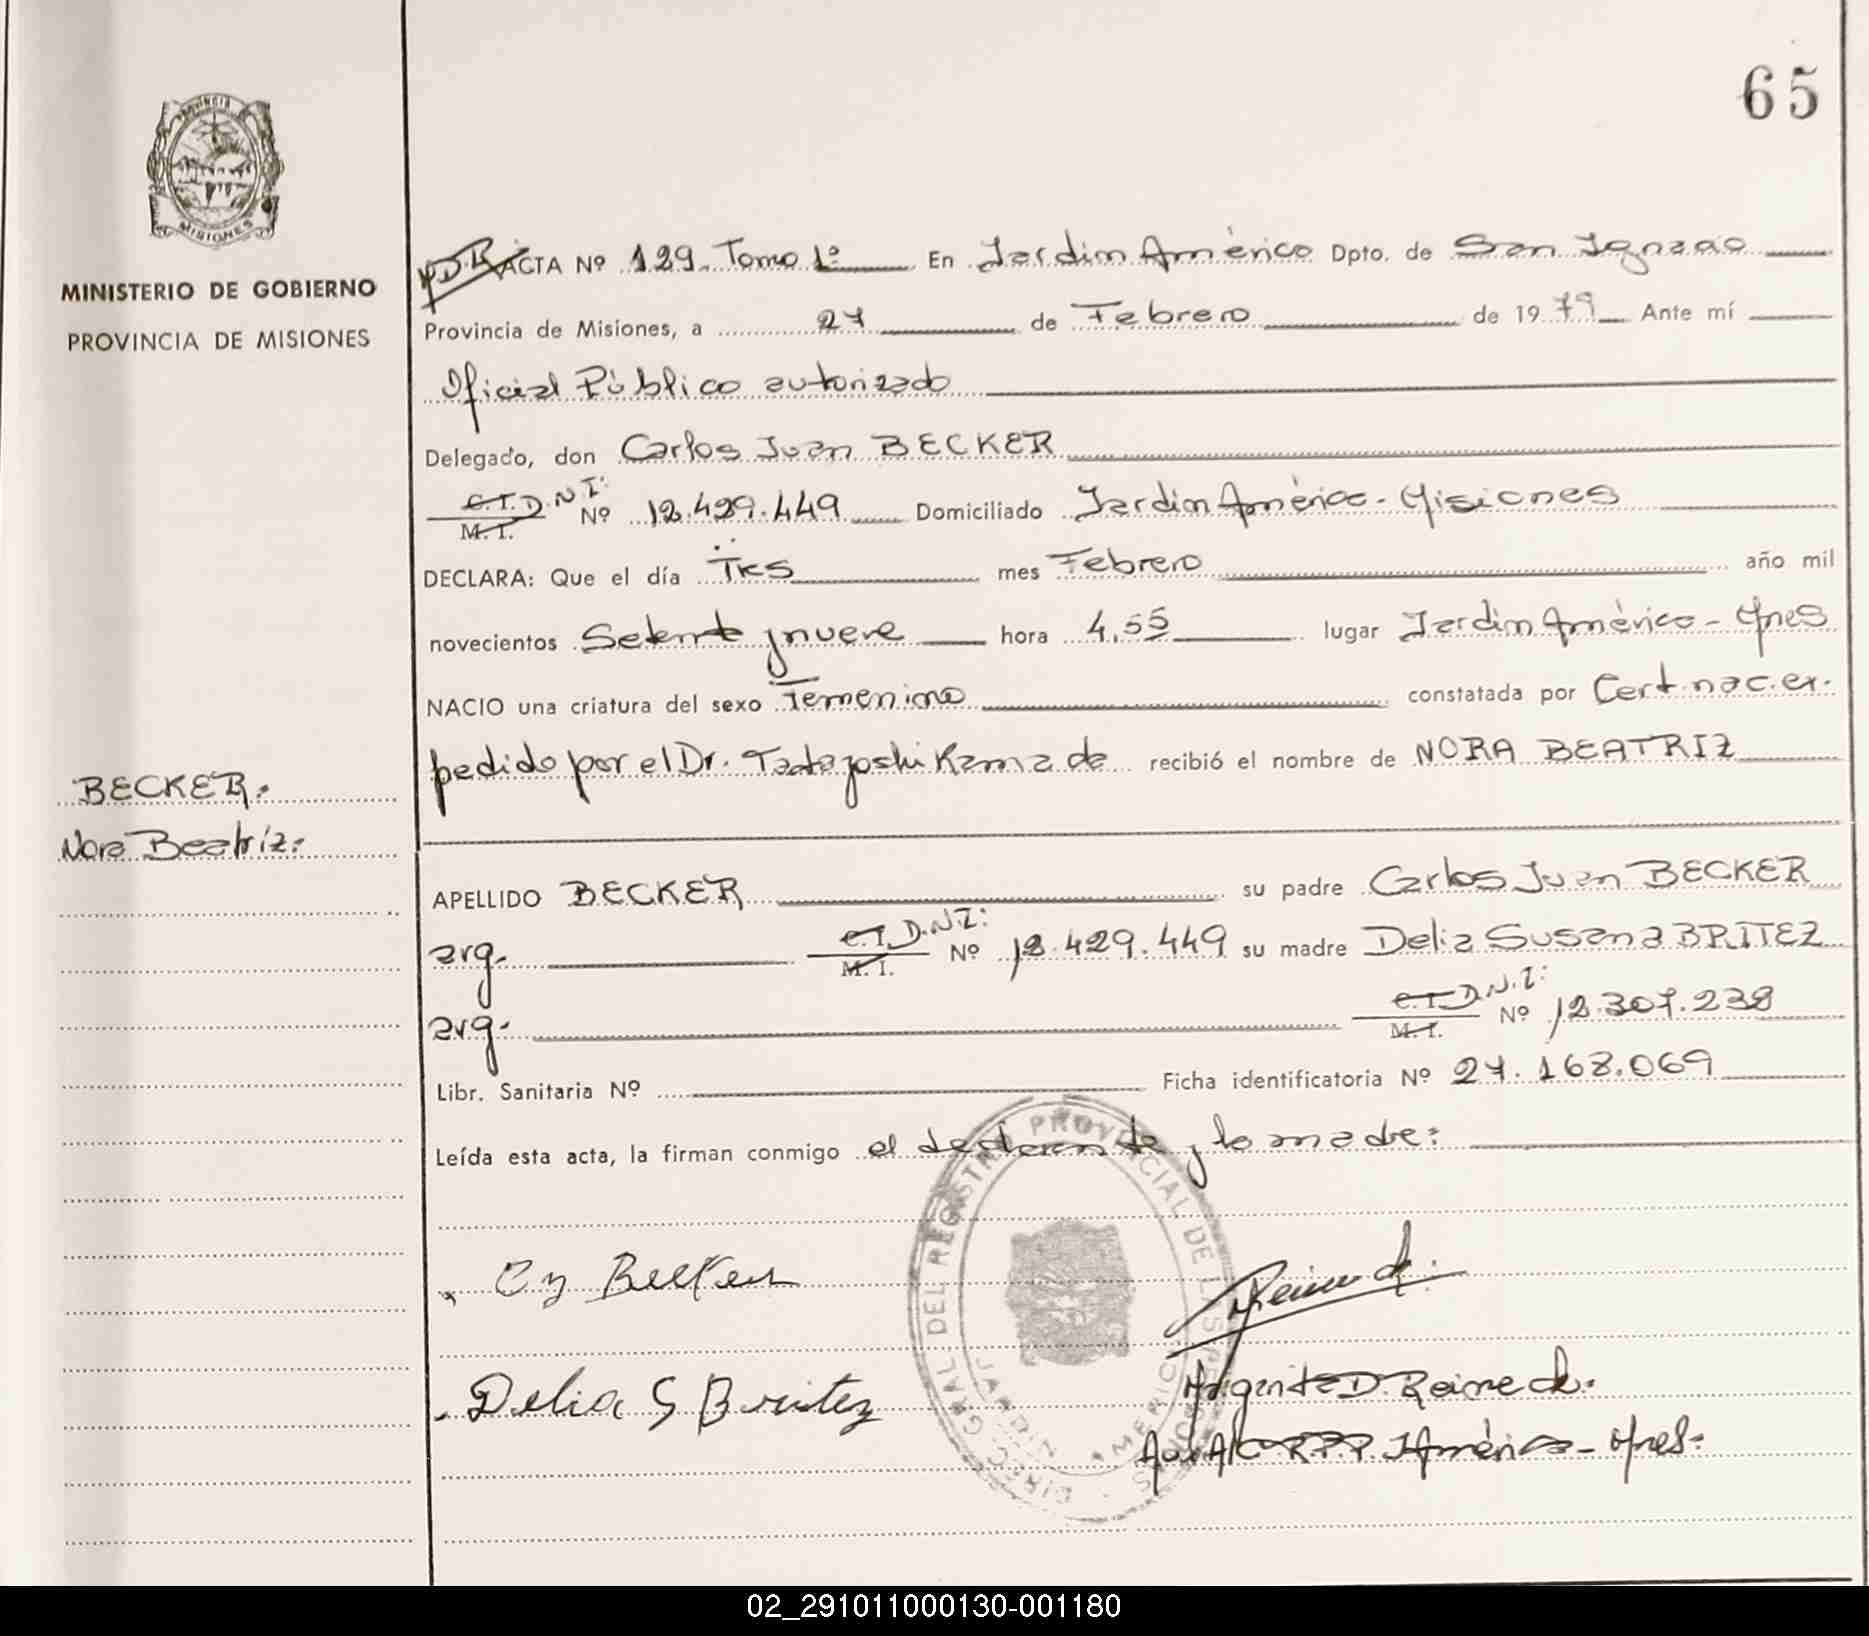 65
PROVINCIA
MISIONES
MINISTERIO DE GOBIERNO
PROVINCIA DE MISIONES
ACTA Nº 129. Tomo 1º En Jardin América Dpto. de San Ignacio
Provincia de Misiones, a 27 de Febrero de 1979 Ante mí
Oficial Público autorizado
Delegado, don Carlos Juan BECKER
C.I. D.N.I:
M. I. Nº 12.429.449 Domiciliado Jardin América - Misiones
DECLARA: Que el día Tres mes Febrero año mil
novecientos Setenta y nueve hora 4,55 lugar Jardin América - Mnes
NACIO una criatura del sexo Femenino constatada por Cert. nac. ex.
pedido por el Dr. Tadayoshi Kamada recibió el nombre de NORA BEATRIZ
BECKER.
Nora Beatriz.
APELLIDO BECKER su padre Carlos Juan BECKER
arg. C.I. D.N.I:
M. I. Nº 12.429.449 su madre Delia Susana BRITEZ
arg. C.I. D.N.I:
M. I. Nº 12.307.238
Libr. Sanitaria Nº Ficha identificatoria Nº 27.168.069
Leída esta acta, la firman conmigo el declarante y la madre:
DIREC. GRAL. DEL REGISTRO PROVINCIAL DE LAS PERSONAS
JARDIN AMERICA
Becker
Delia S Britez
D. Reineck.
R.P.P. J. América - Mnes.
02_291011000130-001180